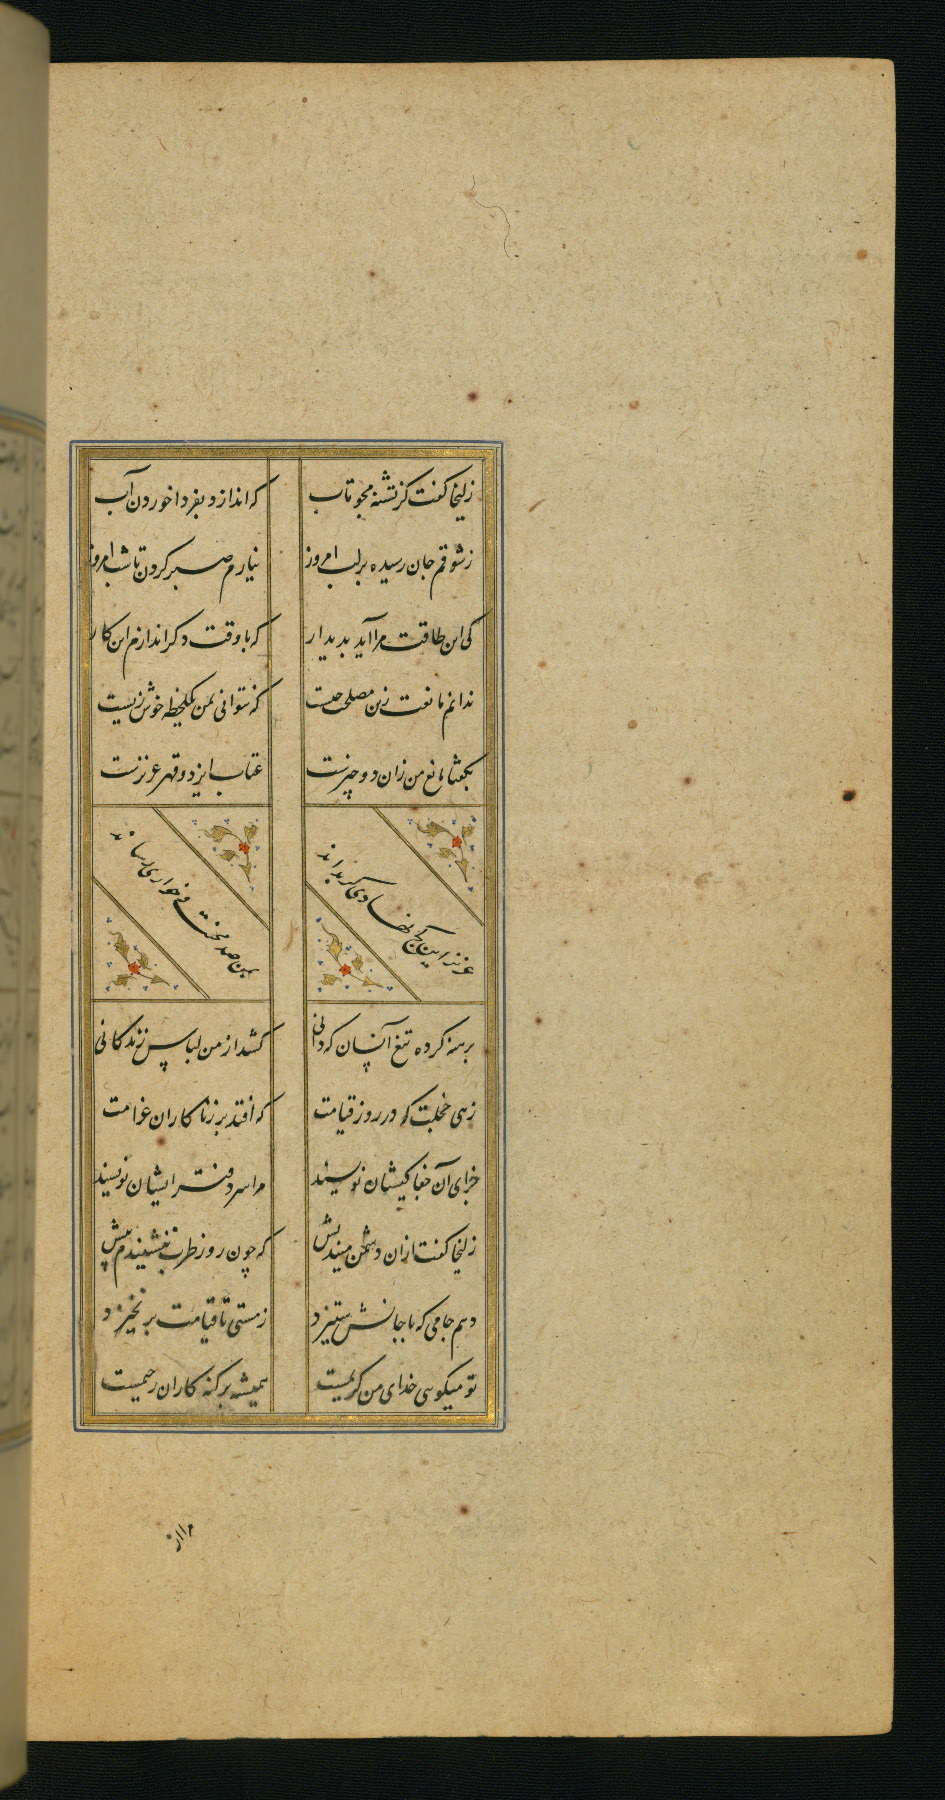 زلیخا گفت کز تشنه مجو تاب
که اندازد بفردا خوردن آب
ز شوقم جان رسیده بر لب امروز
نیارم صبر کردن تا شب امروز
کی این طاقت مرا آید پدیدار
که با وقت دگر اندازم این کار
ندانم مانعت زین مصلحت چیست
که نتوانی بمن یکلحظه خوش زیست
بگفتا مانع من زان دو چیزست
عتاب ایزد و قهر عزیزست
عزیز این کج نهادی گر بداند
بمن صد محنت و خواری رساند
برهنه کرده تیغ آنسان که دانی
کشد از من لباس زندگانی
زهی خجلت که در روز قیامت
که افتد بر زناکاران غرامت
جزای آن جفاکیشان نویسند
مرا سر دفتر ایشان نویسند
زلیخا گفت ازان دشمن میندیش
که چون روز طرب بنشیندم پیش
دهم جامی که با جانش ستیزد
ز مستی تا قیامت برنخیزد
تو میگویی خدای من کریمست
همیشه بر گنه کاران رحیمست